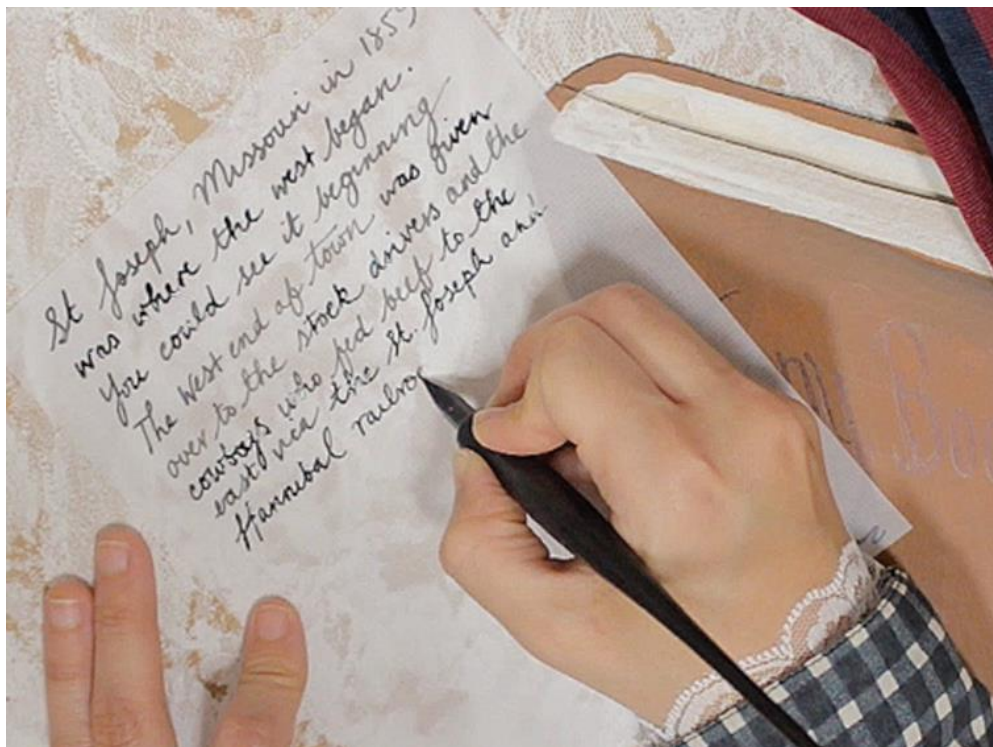 St Joseph, Missouri in 185
was where the west began.
You could see it beginning
The West end of town was given
over to the stock drivers and the
cowboys who fed beef to the
east via the St. Joseph and
Hannibal railro
my Bo